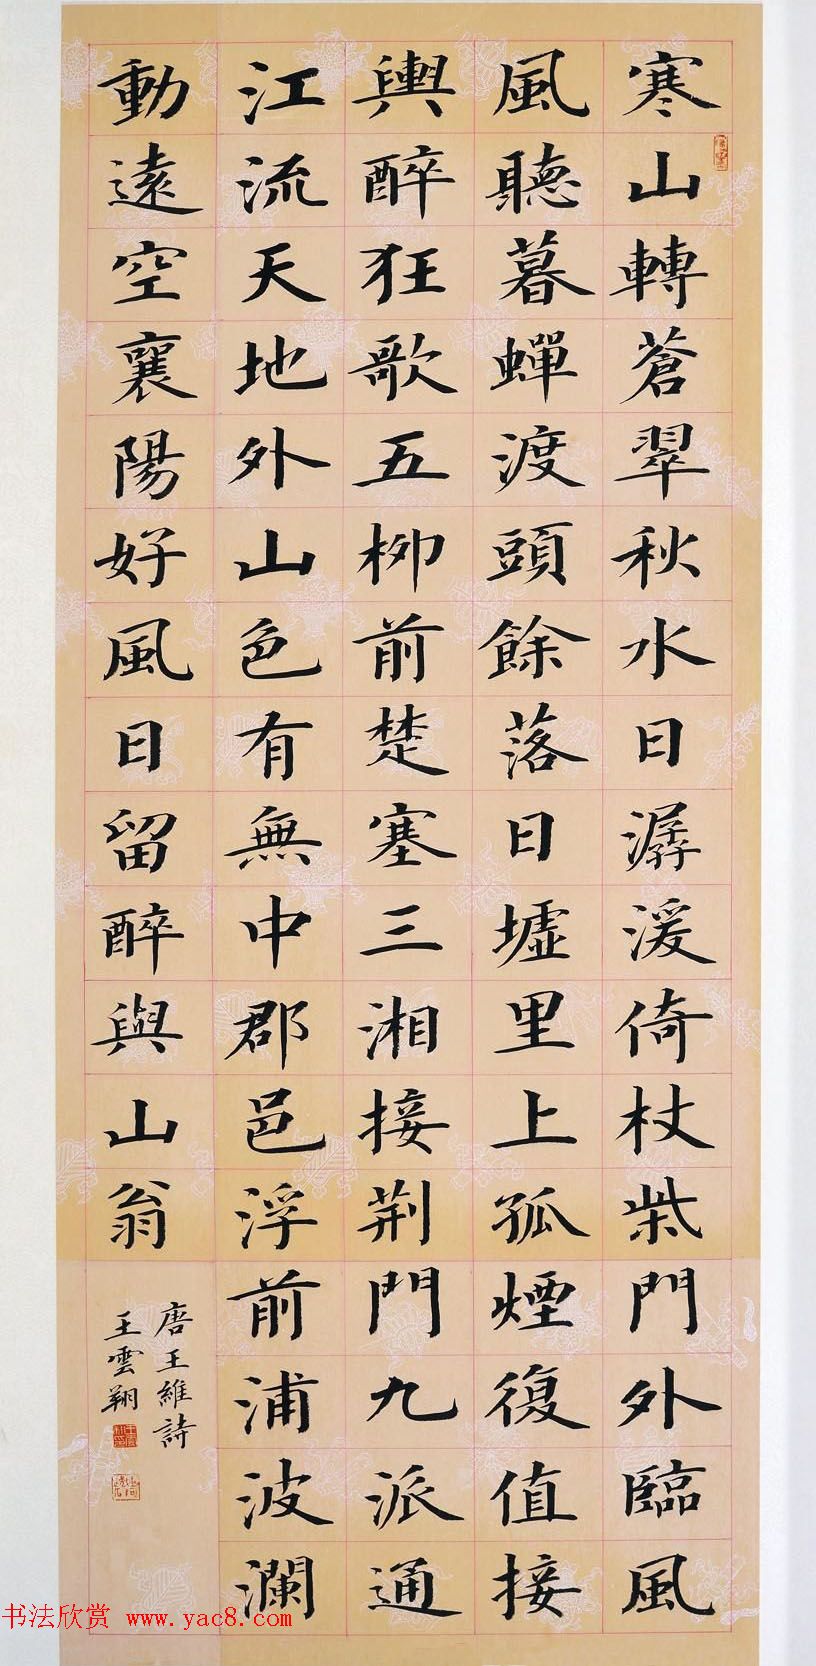 寒山轉蒼翠秋水日潺湲倚杖柴門外臨風
風聽暮蟬渡頭餘落日墟里上孤煙復值接
輿醉狂歌五柳前楚塞三湘接荊門九派通
江流天地外山色有無中郡邑浮前浦波瀾
動遠空襄陽好風日留醉與山翁
唐王維詩
王雲翔
书法欣赏 www.yac8.com